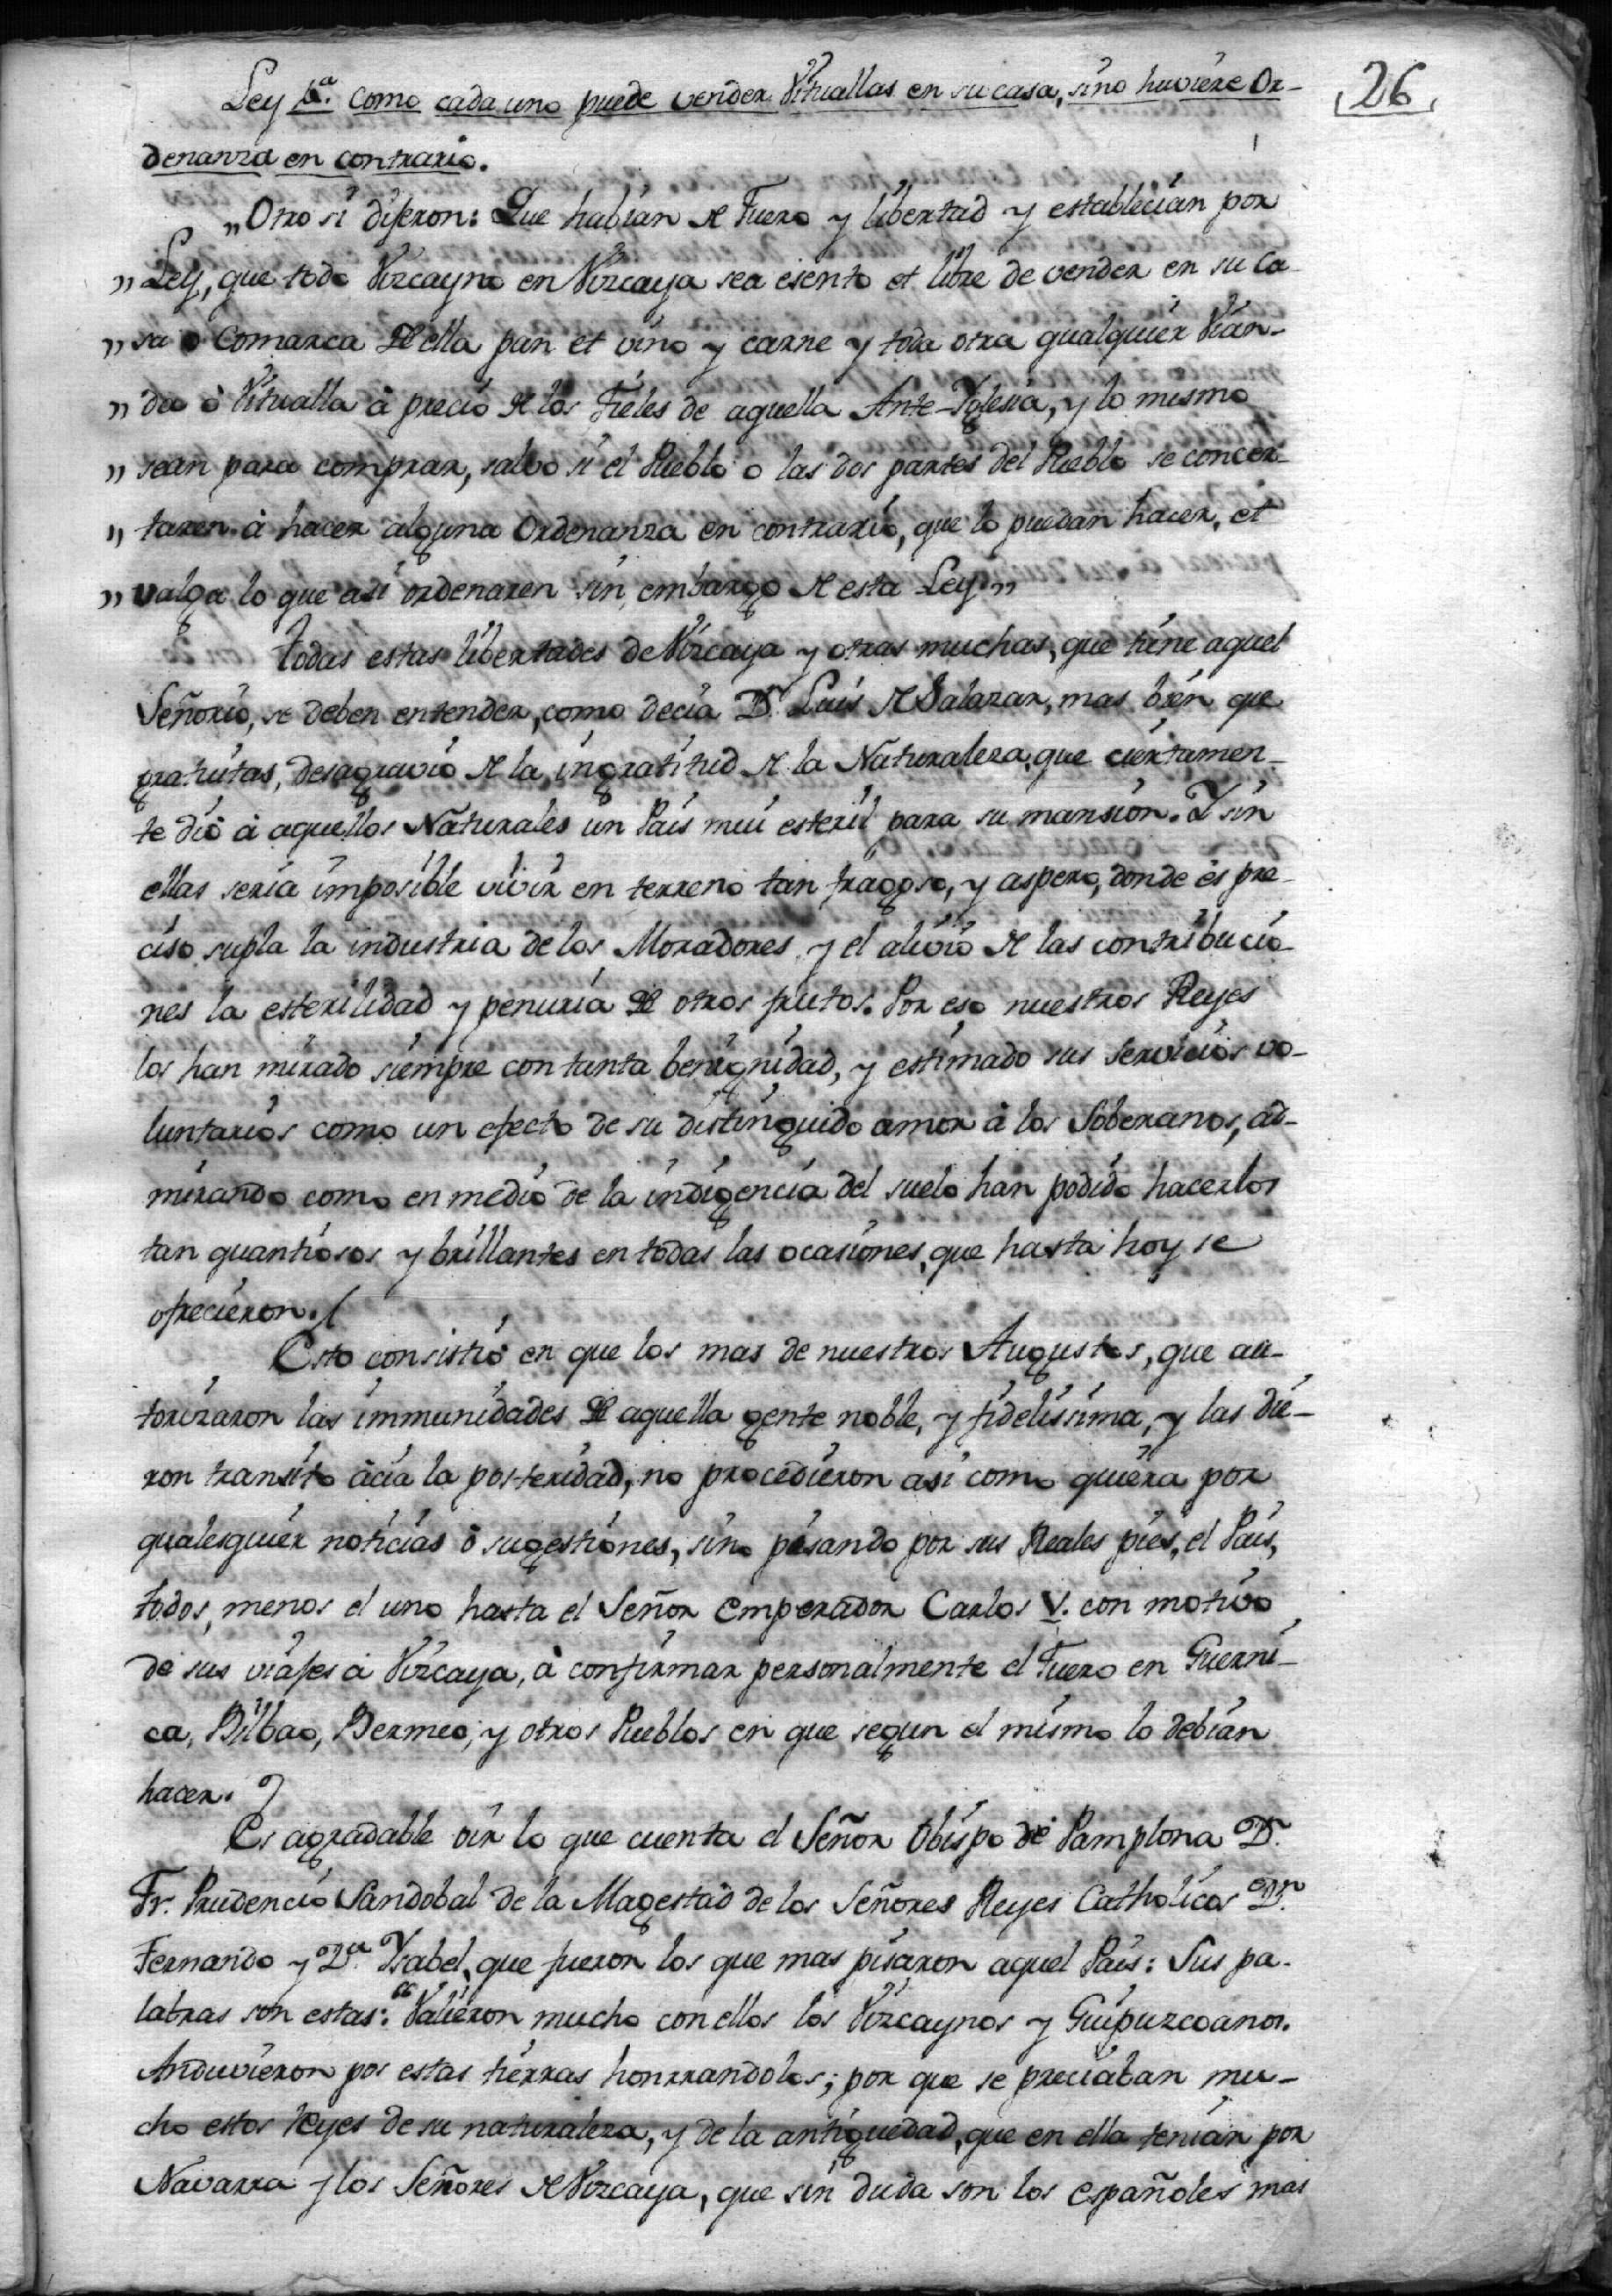 26
Ley 6.ª como cada uno puede vender Vituallas en su casa, sino huviere Or-
denanza en contrario.
„Otro si dijeron: Que habian de Fuero y libertad y establecian por
„Ley, que todo Vizcayno en Vizcaya sea esento et libre de vender en su ca-
„sa o Comarca de ella pan et vino y carne y toda otra qualquier Vian-
„da ò Vitualla à precio de los Fieles de aquella Ante-Yglesia, y lo mesmo
„sean para comprar, salvo si el Pueblo o las dos partes del Pueblo se concer-
„taren à hacer alguna Ordenanza en contrario, que lo puedan hacer, et
„valga lo que asi ordenaren sin embargo de esta Ley„
Todas estas libertades de Vizcaya y otras muchas, que tiene aquel
Señorio, se deben entender, como decia D. Luis de Salazar, mas bien que
gratuitas, desagravio de la ingratitud de la Naturaleza, que ciertamen-
te dio à aquellos Naturales un Pais mui esteril para su mansion. Y sin
ellas seria imposible vivir en terreno tan fragoso, y aspero, donde es pre-
ciso supla la industria de los Moradores y el alivio de las contribucio-
nes la esterilidad y penuria de otros frutos. Por eso nuestros Reyes
los han mirado siempre con tanta benignidad, y estimado sus servicios vo-
luntarios como un efecto de su distinguido amor à los Soberanos, ad-
mirando como en medio de la indigencia del suelo han podido hacerlos
tan quantiosos y brillantes en todas las ocasiones, que hasta hoy se
ofrecieron.
Esto consistiò en que los mas de nuestros Augustos, que au-
torizaron las immunidades de aquella gente noble, y fidelissima, y las die-
ron transito àcia la posteridad, no procedieron asi como quiera por
qualesquier noticias ò sugestiones, sino pisando por sus Reales pies, el Pais,
todos, menos el uno hasta el Señor Emperador Carlos V. con motivo
de sus viajes à Vizcaya, à confirmar personalmente el Fuero en Guerni-
ca, Bilbao, Bermeo, y otros Pueblos en que segun el mismo lo debian
hacer.
Es agradable oir lo que cuenta el Señor Obispo de Pamplona D.
Fr. Prudencio Sandobal de la Magestad de los Señores Reyes Catholicos D.n
Fernando y D.ª Ysabel, que fueron los que mas pisaron aquel Pais: Sus pa-
labras son estas: “Valieron mucho con ellos los Vizcaynos y Guipuzcoanos.
Anduvieron por estas tierras honrrandolos; por que se preciaban mu-
cho estos Reyes de su naturaleza, y de la antiguedad, que en ella tenian por
Navarra y los Señores de Vizcaya, que sin duda son los Españoles mas